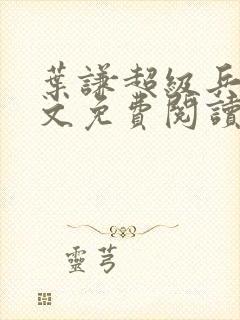 葉謙超級兵
文免費閱讀
靈芎